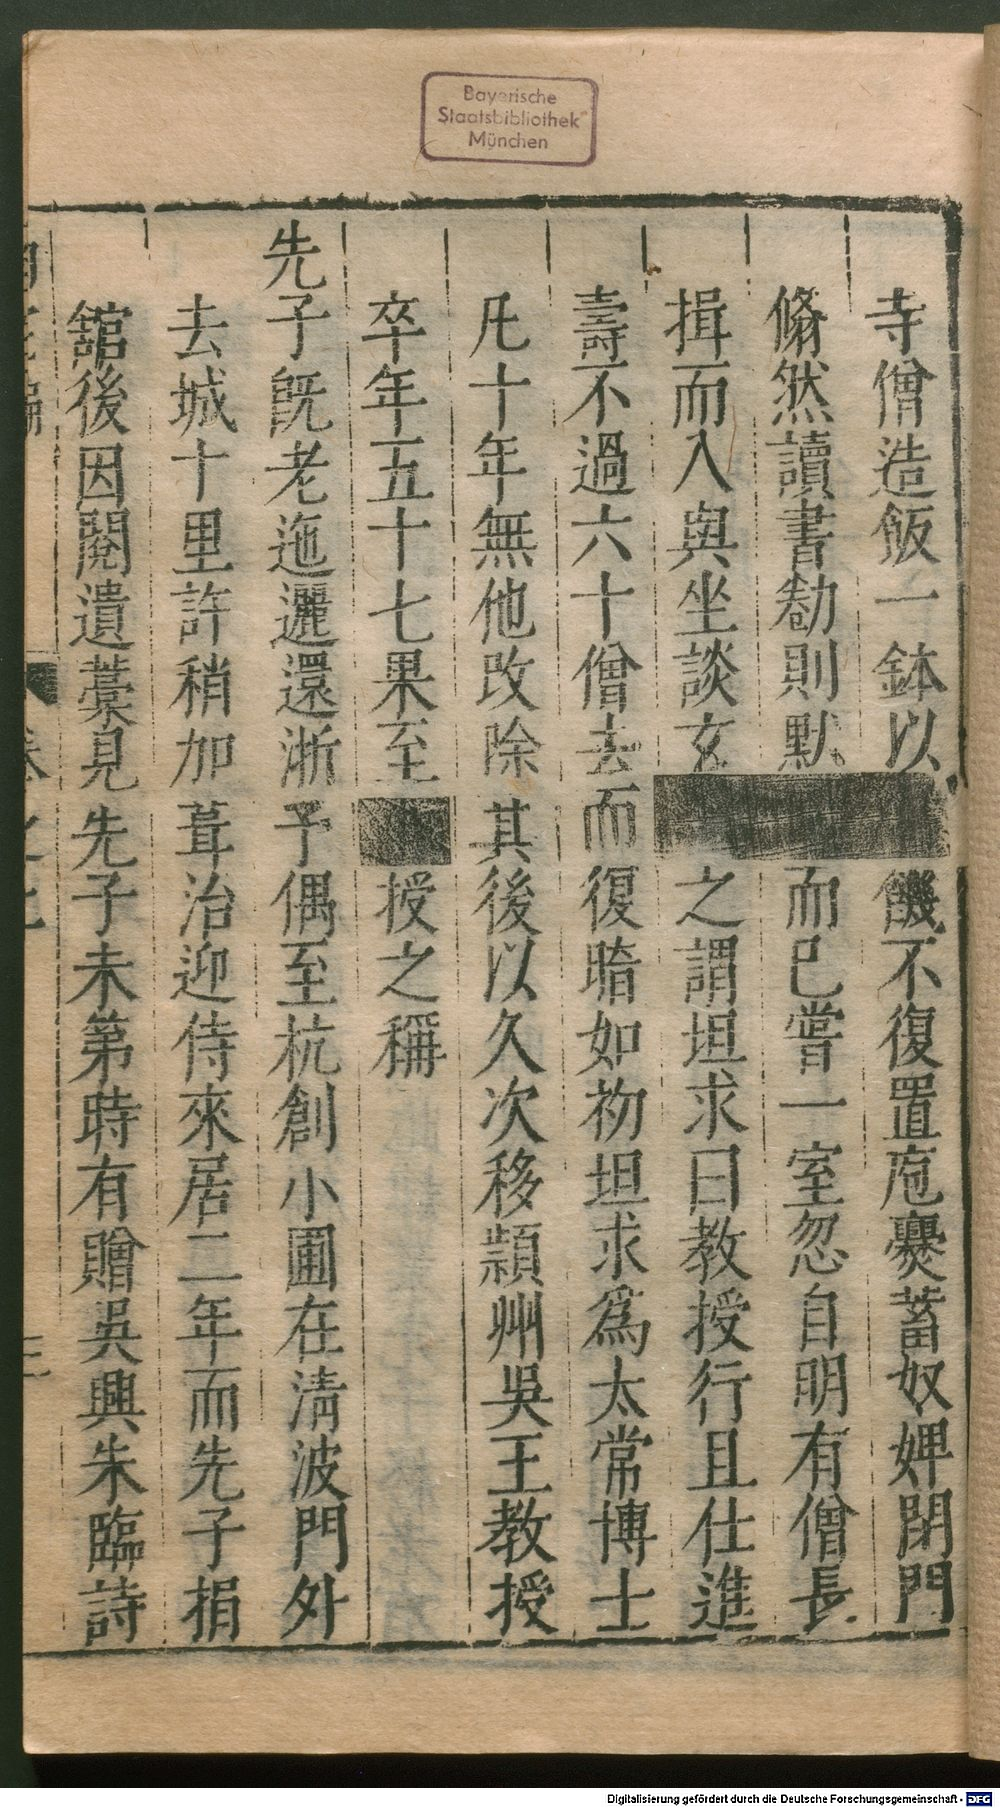 Bayerische
Staatsbibliothek
München
寺僧造飯一鉢以饑不復置庖爨蓄奴婢閉門
翛然讀書勌則默而已嘗一室忽自明有僧長
揖而入與坐談玄之謂坦求曰教授行且仕進
壽不過六十僧去而復暗如初坦求爲太常博士
凡十年無他改除其後以久次移潁州吳王教授
卒年五十七果至授之稱
先子旣老迤邐還浙予偶至杭創小圃在淸波門外
去城十里許稍加葺治迎侍來居二年而先子捐
舘後因閱遺藁見先子未第時有贈吳興朱臨詩
Digitalisierung gefördert durch die Deutsche Forschungsgemeinschaft - DFG